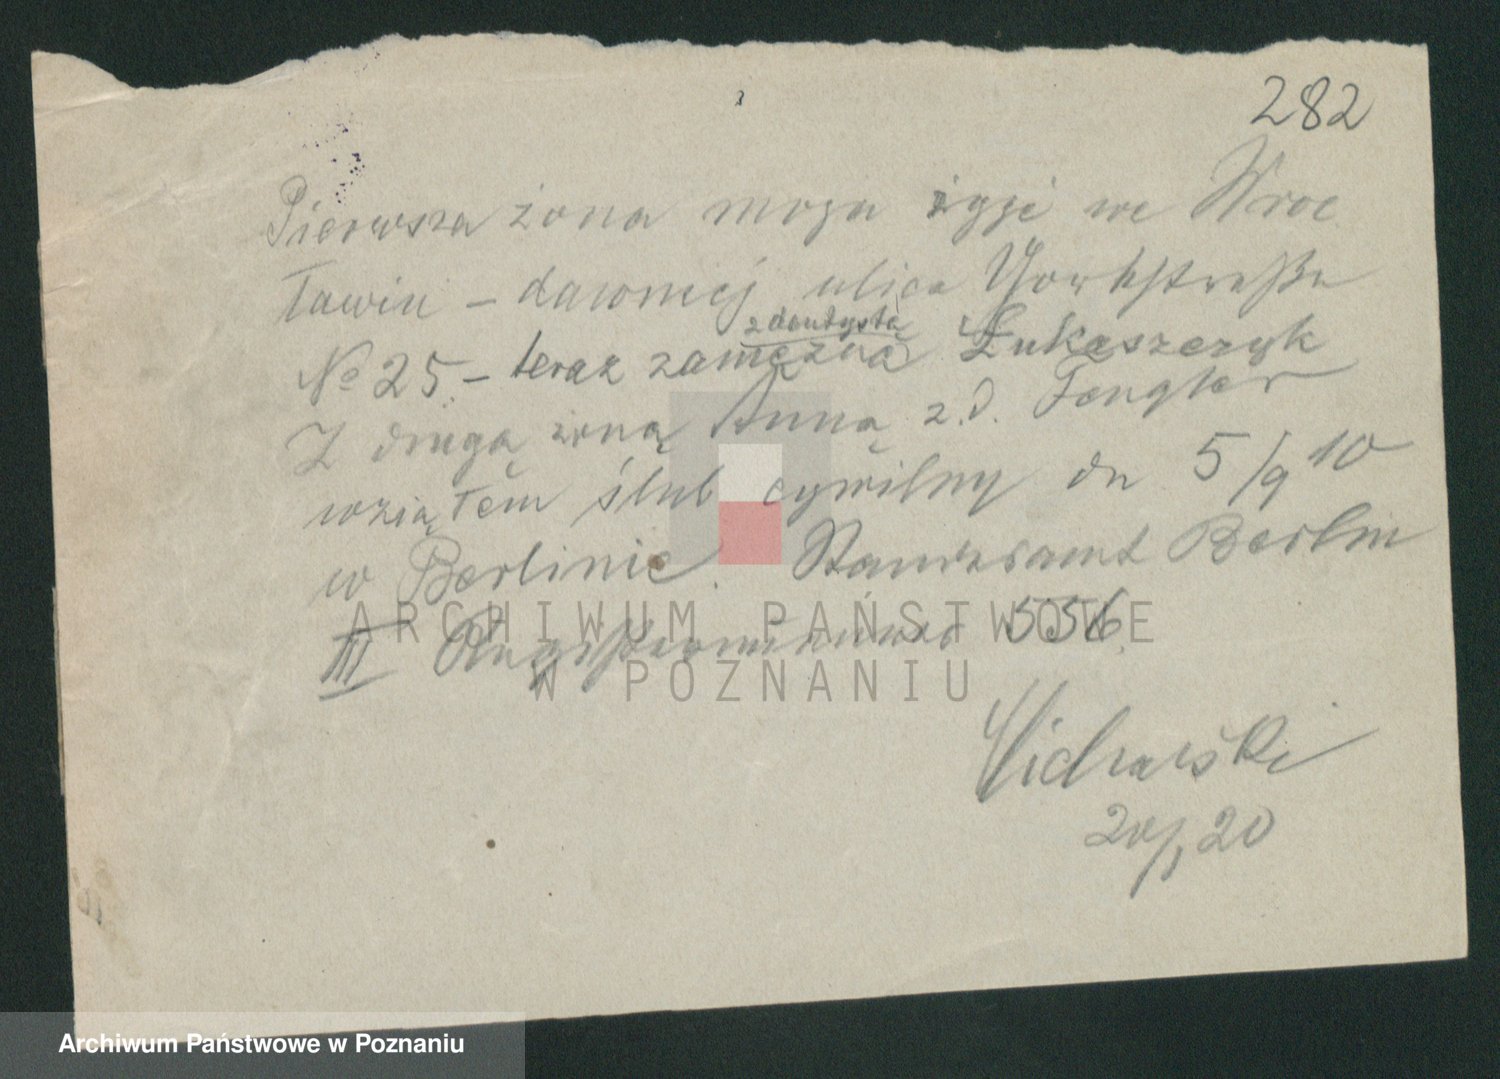 282
Pierwsza żona moja żyje we Wroc
ławiu – dawniej ulica Yorkstraße
z dentystą
No 25 – teraz zamężna Łukaszczyk
Z drugą żoną Anną z.d. Fengler
wziąłem ślub cywilny dn 5/9 10
w Berlinie. Standesamt Berlin
III Registernummer 556.
20/1 20
ARCHIWUM PAŃSTWOWE
W POZNANIU
Archiwum Państwowe w Poznaniu